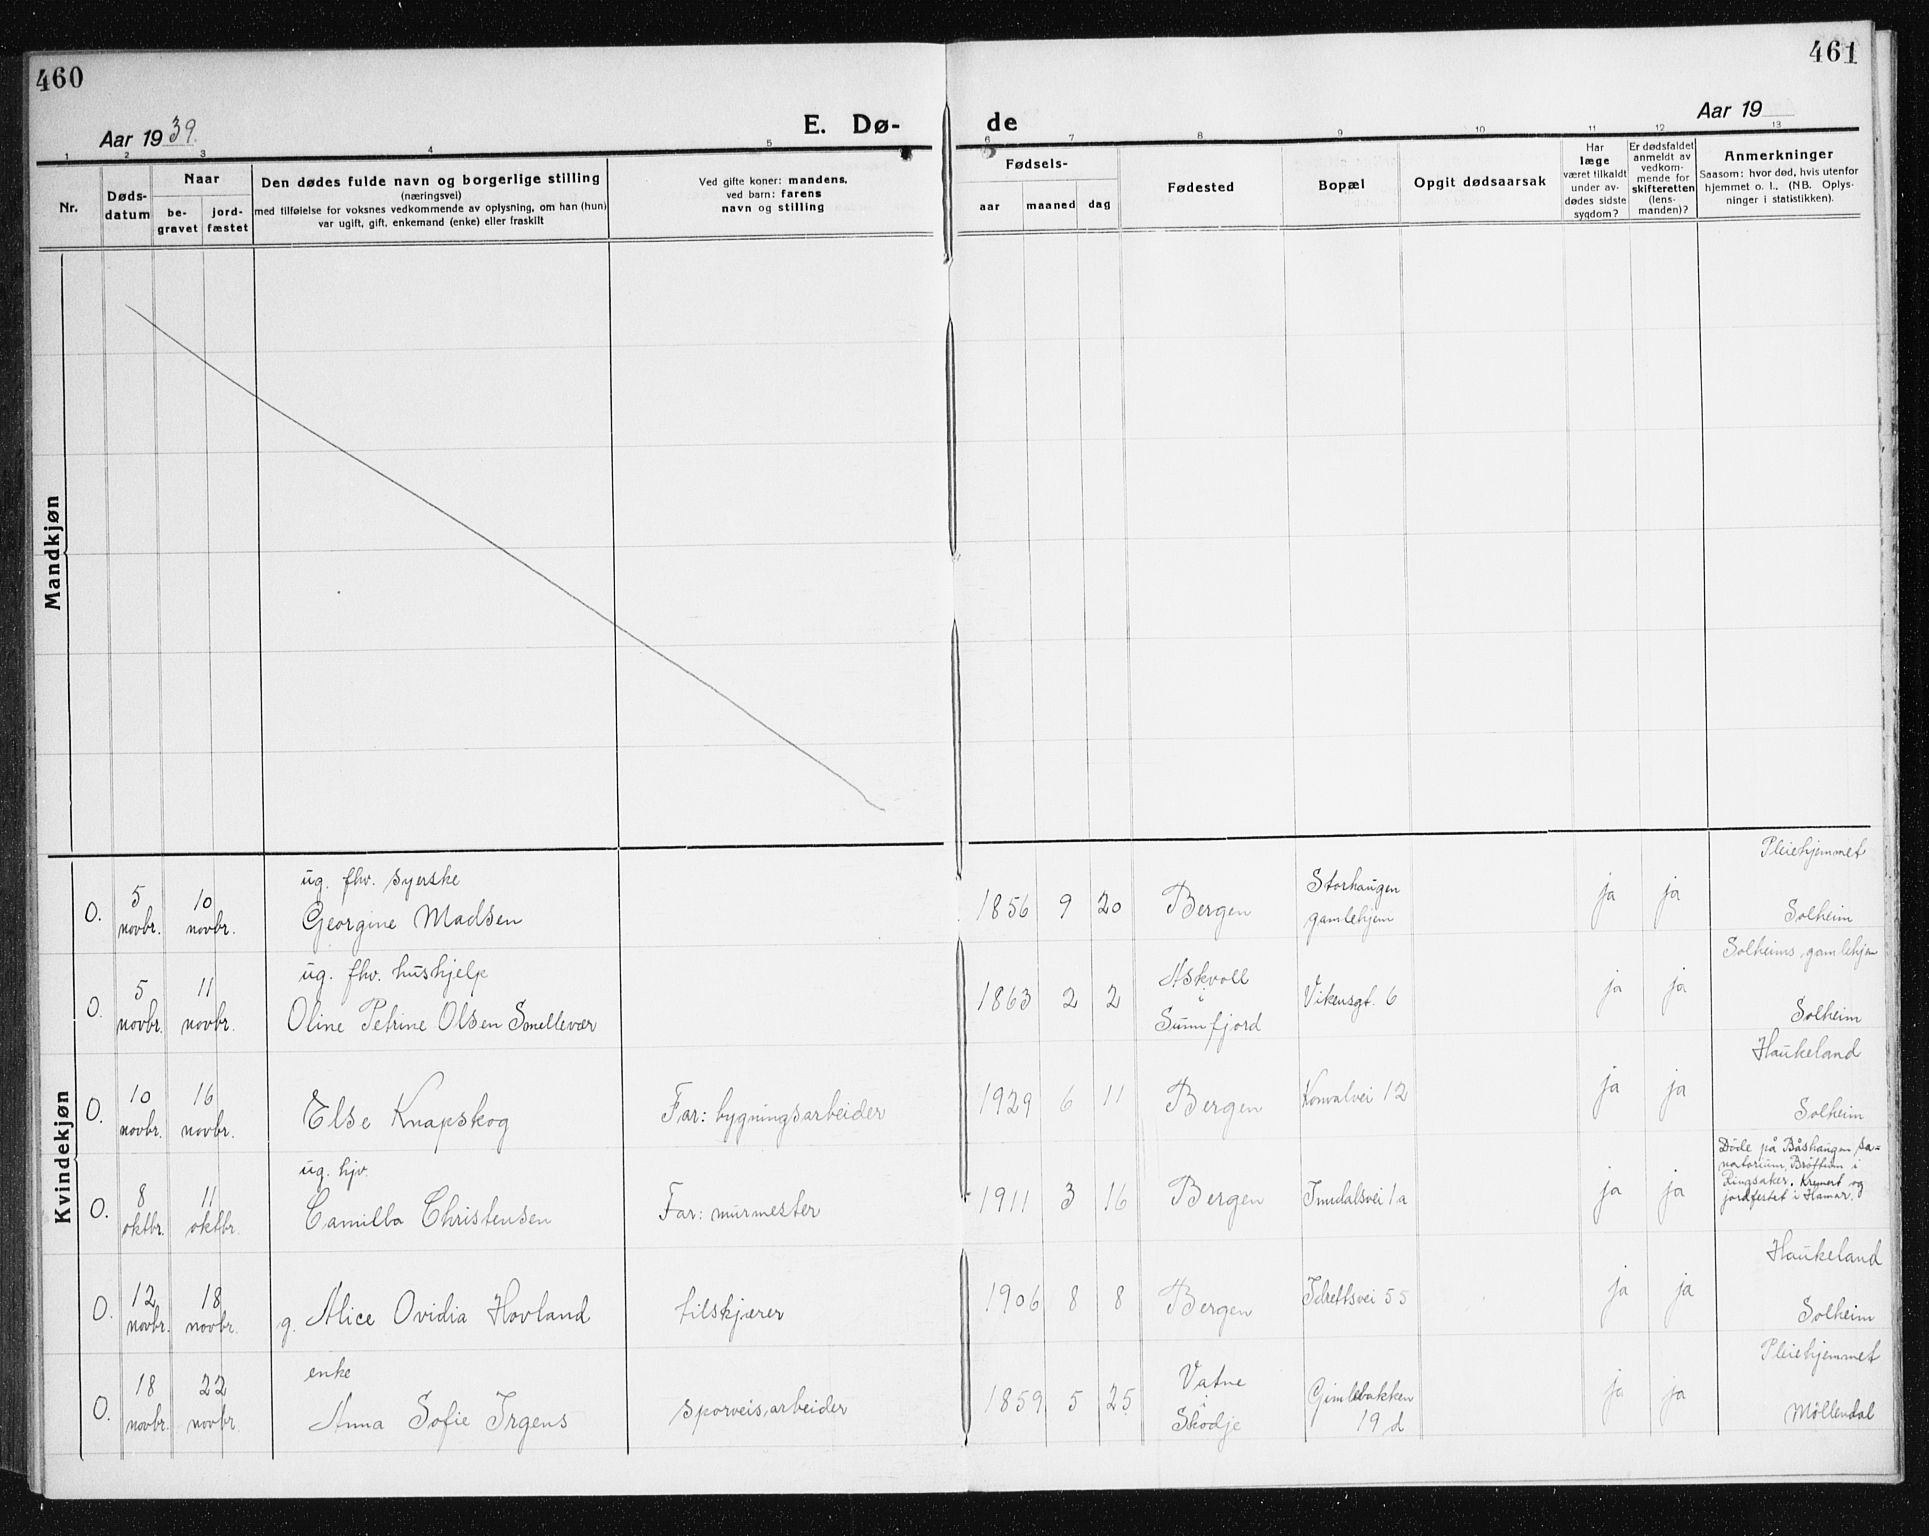 460
461
Aar 1939.
E. Dø-
de
Aar 19
1 2 3 4 5 6 7 8 9 10 11 12 13
Nr.
Døds-
datum
Naar
be-
gravet
jord-
fæstet
Den dødes fulde navn og borgerlige stilling
(næringsvei)
med tilføielse for voksnes vedkommende av oplysning, om han (hun)
var ugift, gift, enkemand (enke) eller fraskilt
Ved gifte koner: mandens,
ved barn: farens
navn og stilling
Fødsels-
aar
maaned
dag
Fødested
Bopæl
Opgit dødsaarsak
Har
læge
været tilkaldt
under av-
dødes sidste
sygdom?
Er dødsfaldet
anmeldt av
vedkom-
mende for
skifteretten
(lens-
manden)?
Anmerkninger
Saasom: hvor død, hvis utenfor
hjemmet o. l., (NB. Oplys-
ninger i statistikken).
Mandkjøn
Kvindekjøn
Pleiehjemmet
O. 5 novbr. 10 novbr.
ug. fhv. syerske
Georgine Madsen
1856 9 20 Bergen
Storhaugen
gamlehjem
ja ja
Solheim
Solheims gamlehjem
O. 5 novbr. 11 novbr.
ug. fhv. hushjelp
Oline Petrine Olsen Smellevær
1863 2 2
Askvoll
i
Sunnfjord
Vikensgt. 6
ja ja
Solheim
Haukeland
O. 10 novbr. 16 novbr.
Else Knapskog
Far: bygningsarbeider
1929 6 11 Bergen
Konvalvei 12
ja ja
Solheim
O. 8 oktbr. 11 oktbr.
ug. hjv.
Camilla Christensen
Far: murmester
1911 3 16 Bergen
Inndalsvei 1a
ja ja
Döde på Båshaugen sa-
natorium, Brøttum i
Ringsaker. Kremert og
jordfestet i Hamar.
Haukeland
O. 12 novbr. 18 novbr.
g. Alice Ovidia Hovland
tilskjærer
1906 8 8 Bergen
Idrettsvei 55
ja ja
Solheim
Pleiehjemmet
O. 18 novbr. 22 novbr.
enke
Anna Sofie Irgens
sporveisarbeider
1859 5 25
Vatne
i
Skodje
Gimlebakken
19 d
ja ja
Möllendal